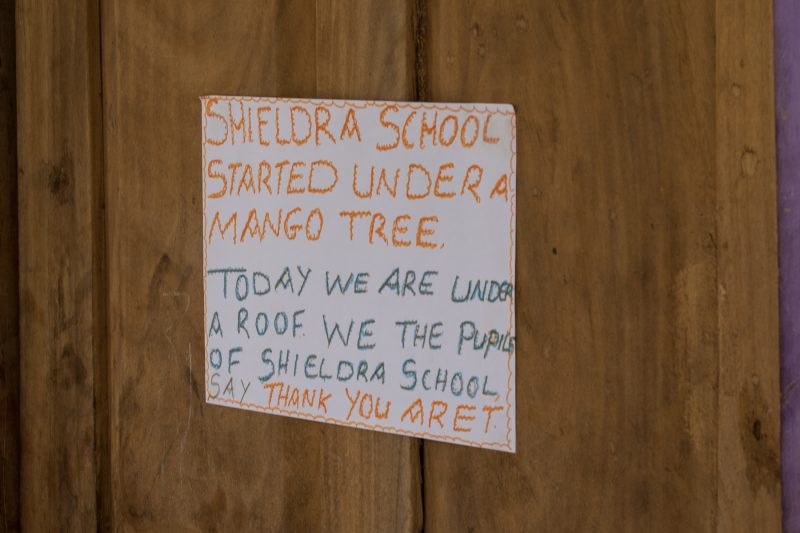 SHIELDRA SCHOOL
STARTED UNDER A
MANGO TREE.
TODAY WE ARE UNDER
A ROOF. WE THE PUPILS
OF SHIELDRA SCHOOL,
SAY THANK YOU ARET.